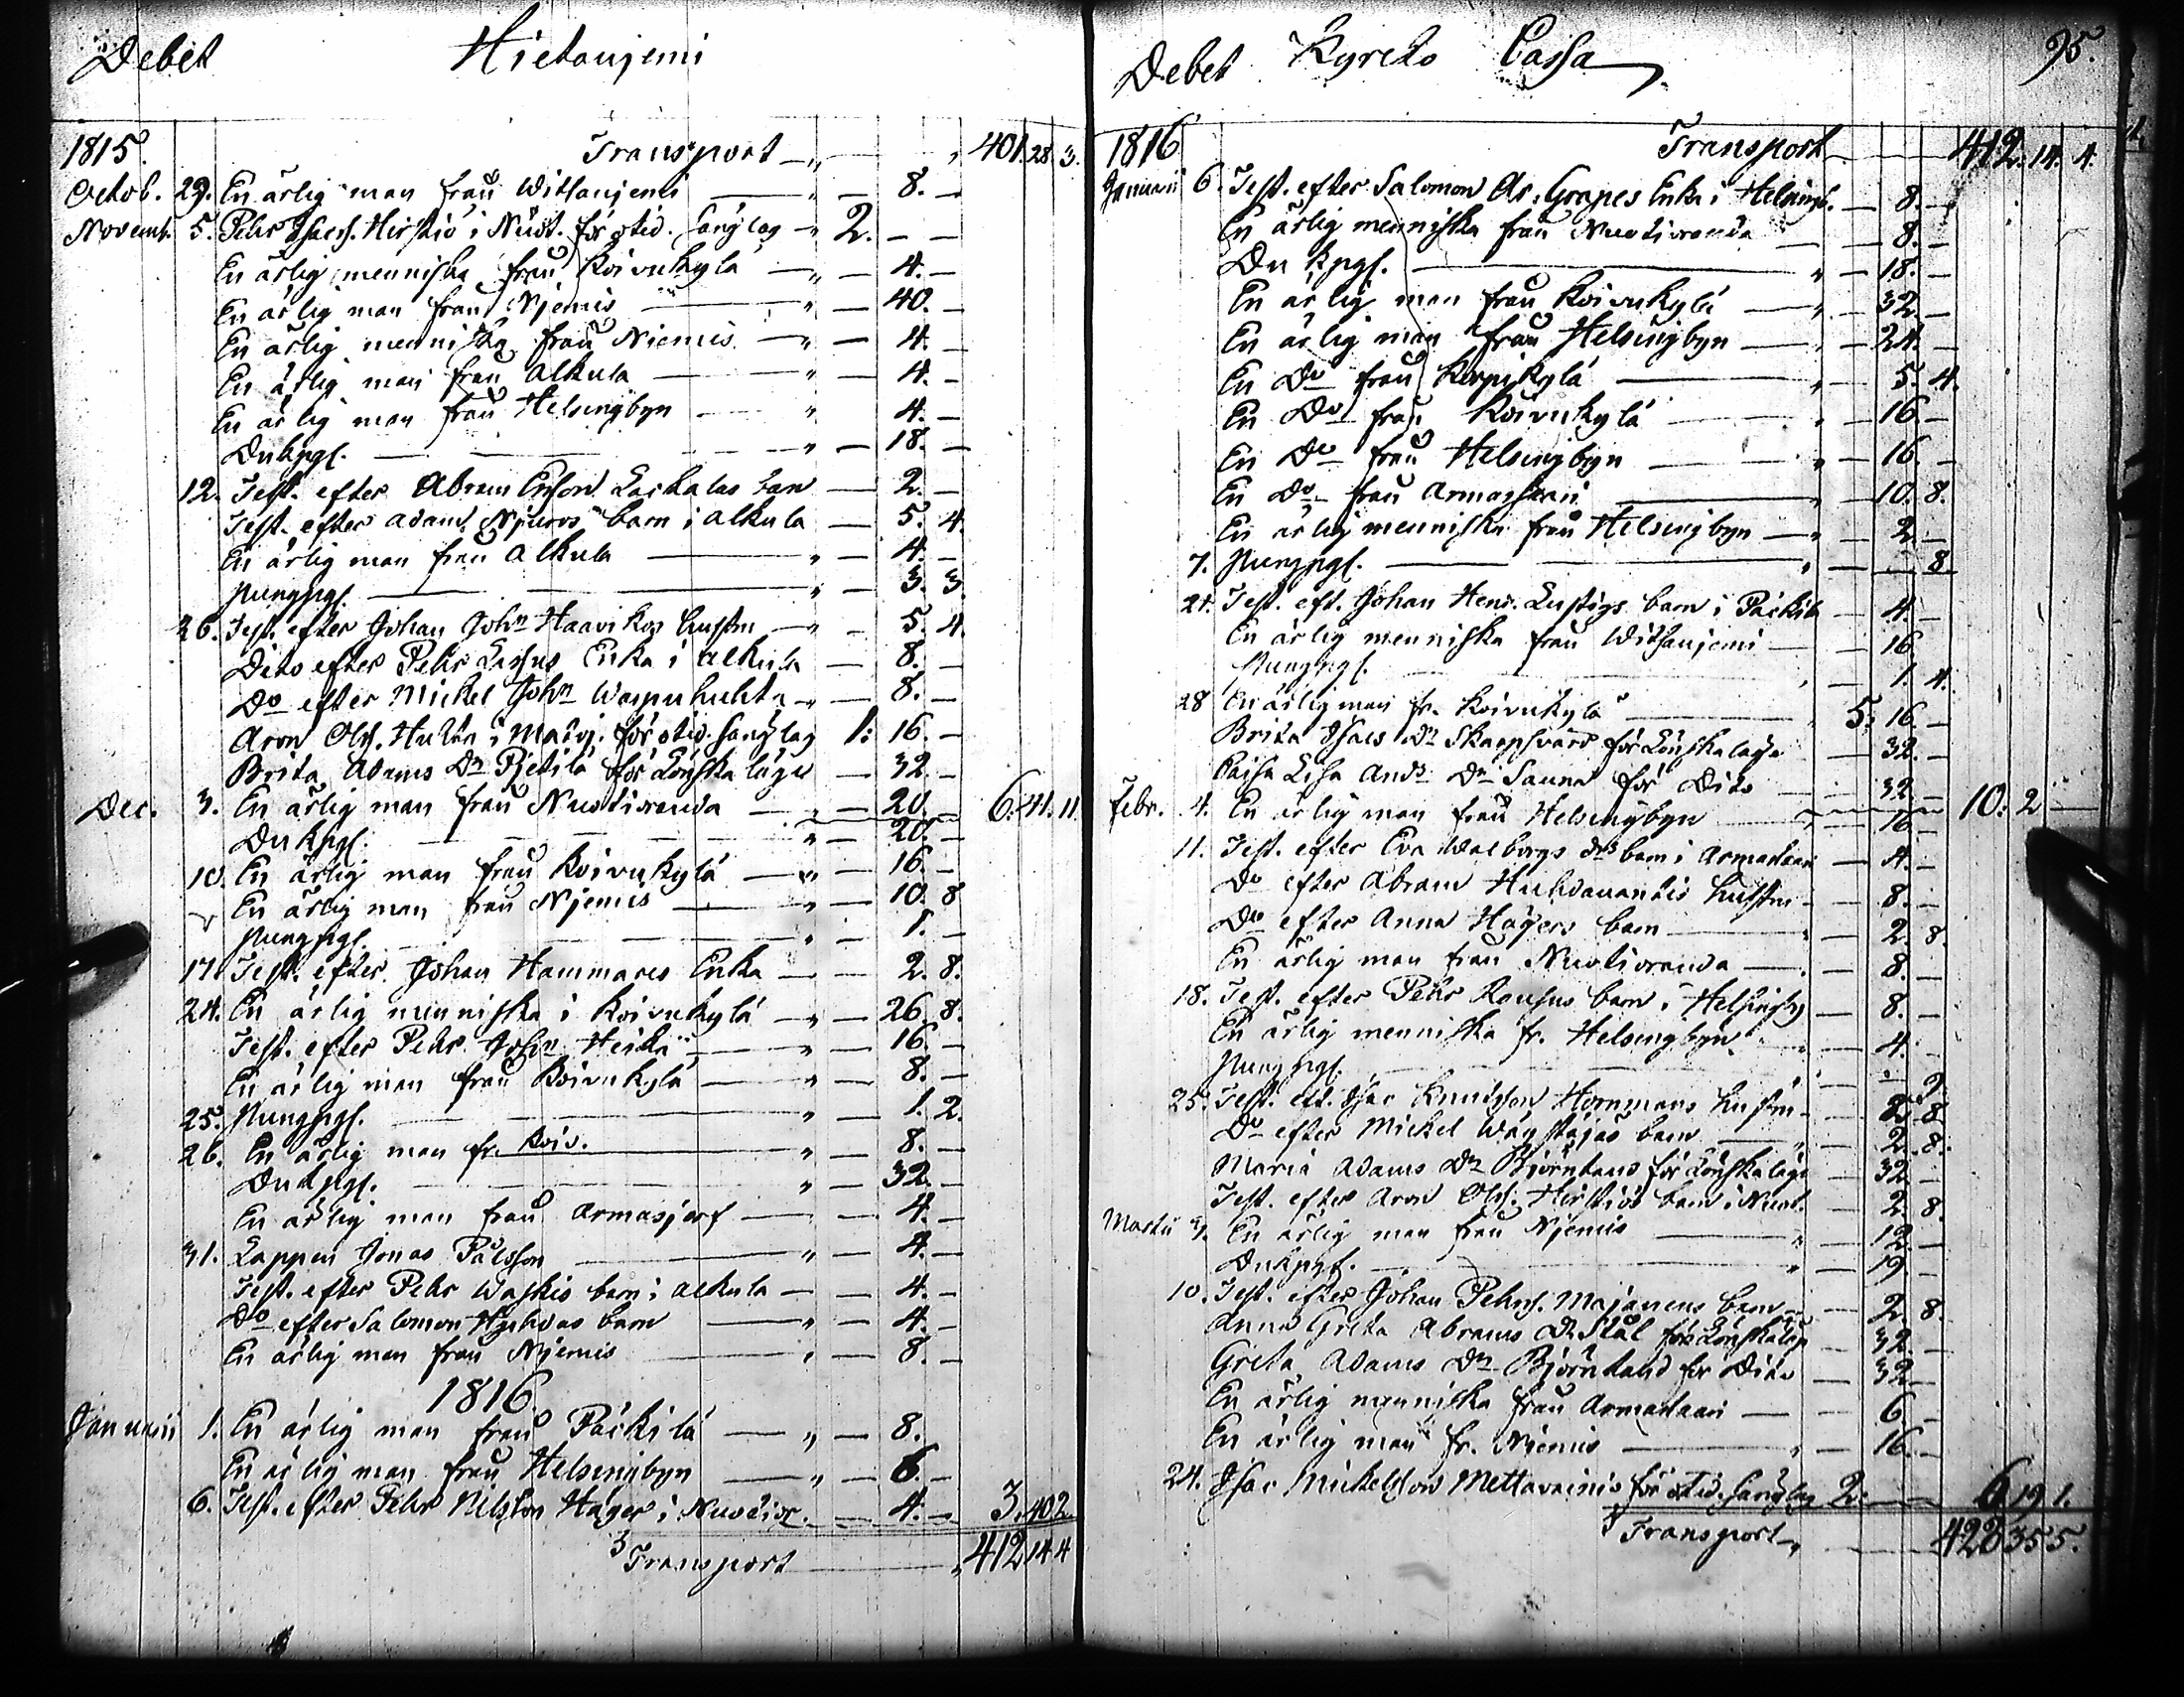 Debet Hietanjemi
1815. Transport 401. 28. 3.
Octob. 29. En ärlig man från Witsanjemi 8. –
Novemb. 5. Pehr Isacs. Hirstiö i Nuot. för otid. sänglag 2. – –
En ärlig menniska från Koivukylä 4. –
En ärlig man från Njemis 40. –
En ärlig menniska från Niemis 4. –
En ärlig man från Alkula 4. –
En ärlig man från Helsingbyn 4. –
Dukpgl. 18. –
12. Test. efter Abram Ersson Laskalas barn 2. –
Test. efter Adam Njuros barn i Alkula 5. 4.
En ärlig man från Alkula 4. –
Pungpgl. 3. 3.
26. Test. efter Johan Johns Haavikos hustru 5. 4.
Dito efter Pehr Lassus Enka i Alkula 8. –
Do efter Mickel Johns 8. –
Aron Ols. Hulta i Matoj. för otid. sänglag 1: 16. –
Brita Adams Dr Pjetilä för Lönskaläge 32. –
Dec. 3. En ärlig man från Nuotioranda 20. – 6. 41. 11
Dukpgl. 20. –
10. En ärlig man från Koivukylä 16. –
En ärlig man från Njemis 10. 8
Pungpgl. 1. –
17. Test. efter Johan Hammares Enka 2. 8.
24. En ärlig menniska i Koivukylä 26. 8.
Test. efter Pehr Johns Heikä 16. –
En ärlig man från Koivukylä 8. –
25. Pungpgl. 1. 2.
26. En ärlig man fr. Koiv. 8. –
Dukpgl. 32. –
En ärlig man från Armasjerf 4. –
31. Lappen Jonas Pålsson 4. –
Test. efter Pehr Waskis barn i Alkula 4. –
Do efter Salomon barn 4. –
En ärlig man från Njemis 8. –
1816.
Januarii 1. En ärlig man från Päckilä 8.
En ärlig man från Helsingbyn 6. –
6. Test. efter Pehr Nilsson Häger i Nuotior. 4. – 3. 40 2
Transport 412 14 4
Debet Kyrcko Cassa 95.
1816 Transport 412. 14. 4.
Januarii 6. Test. efter Salomon Ar: Grapes Enka i Helsingb. 8. –
En ärlig menniska från Nuotioranda 8. –
Dukpgl. 18. –
En ärlig man från Koivukylä 32. –
En ärlig man från Helsingbyn 24. –
En Do från Karpikylä 5. 4.
En Do från Koivukylä 16 –
En Do från Helsingbyn 16. –
En Do från Armassaari 10. 8.
En ärlig menniska från Helsingbyn 2. –
7. Pungpgl. – 8
21. Test. eft. Johan Henr. Lustigs barn i Päckilä 4. –
En ärlig menniska från Witsanjemi 16.
Pungpgl. 1. 4.
28 En ärlig man fr. Koivukylä 5. 16. –
Brita Isacs Dr Skarpsvärd för Lönskaläge 32. –
Kaisa Lisa Ands Dr Sauna för Dito 32 –
Febr. 4. En ärlig man från Helsingbyn 16 – 10: 2 –
11. Test. efter Eva Walborgs drs barn i Armasaari 4. –
Do efter Abram Huhdanantis hustru 8. –
Do efter Anna Hägers barn 2. 8.
En ärlig man från Nuotioranda 8. –
18. Test. efter Pehr Rousus barn i Helsingby 8. –
En ärlig menniska fr. Helsingbyn 4. –
Pungpgl. – 9
25. Test. eft. Isac Knutsson Hommans hustru 2. 8
Do efter Mickel barn 2. 8.
Maria Adams Dr Björndans för Lönskaläge 32. –
Test. efter Aron Ols. Hirstiös barn i Nuot. 2. 8.
Martii 3. En ärlig man från Njemis 12. –
Dukpgl. 19 –
10. Test. efter Johan Pehrs. Majavens barn 2. 8.
Anna Greta Abrams Dr Stål för Lönskaläge 32. –
Greta Adams Dr Björntans för Dito 32 –
En ärlig menniska från Armasaari 6. –
En ärlig man fr. Njemis 16. –
24. Isac Mickelsson Mettavainio för otid. sänglag 2: 6 19 1.
Transport 428 35 5.